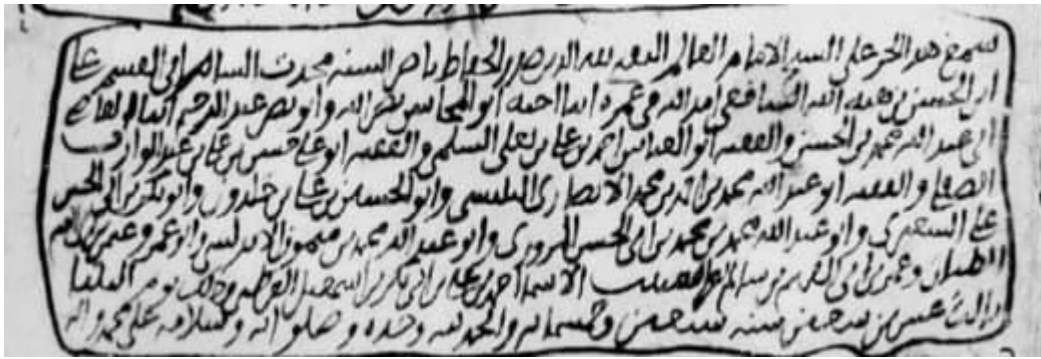 سمع هذا الجز على الشيخ الامام العالم الثقه ثقه الدين صدر الحفاظ ناصر السنه محدث الشام ابي القسم علي
ابن الحسن بن هبه الله الشافعي امد الله في عمره ابنا اخيه ابو المحاسن نصر الله وابو نصر عبد الرحيم ابنا القاضي
ابي عبد الله محمد بن الحسن والفقيه ابو العباس احمد بن علي بن يعلى السلمي والفقيه ابو علي حسن بن علي بن عبد الوارث
والفقيه ابو عبد الله محمد بن محمد الانصاري وابو الحسين بن علي بن خلدون وابو بكر بن ابي الحسن
علي وابو عبد الله محمد بن محمد بن ابي الحسن المروزي وابو عبد الله محمد بن ميمون الاندلسي وابو عمرو
وعمر بن ابي القسم بن سالم الاسما احمد بن علي بن ابي بكر بن اسمعيل القرطبي وذلك يوم الثلثا
ثالث عشرين سنه سبعين وخمسمائه والحمد لله وحده وصلواته وسلامه على محمد واله